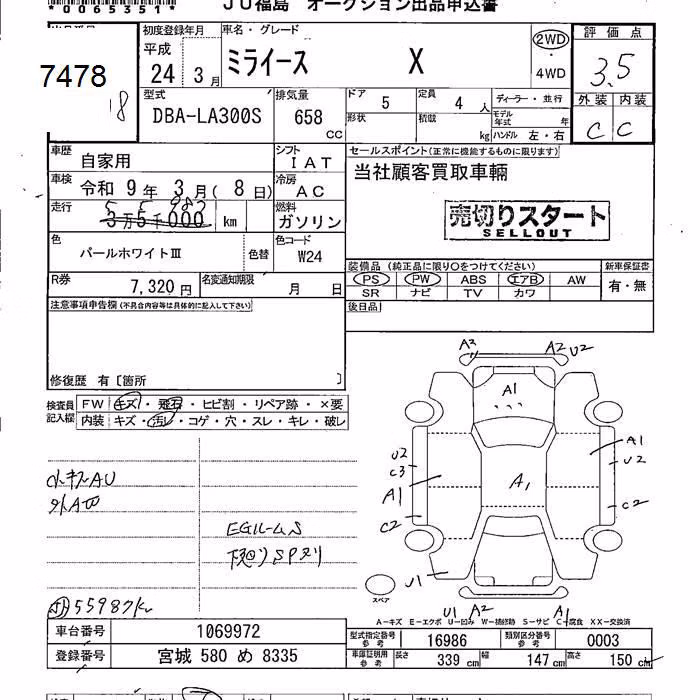 *0065351*
JU福島 オークション出品申込書
7478
18
初度登録年月
平成
24 3月
車名・グレード
ミライース X
2WD
・
4WD
評価点
3.5
外装 内装
C C
型式
DBA-LA300S
排気量
658
cc
ドア
5
定員
4人
形状
積載
kg
ディーラー・並行
モデル年式 年
ハンドル 左・右
車歴
自家用
シフト
IAT
車検
令和 9年 3月(8日)
冷房
AC
走行
5 5 987
3万5千000 km
燃料
ガソリン
色
パールホワイトⅢ
色替
色コード
W24
R券
7,320円
名変通知期限
月 日
セールスポイント(正常に機能するものに限ります)
当社顧客買取車輛
売切りスタート
SELLOUT
装備品(純正品に限り○をつけてください)
PS PW ABS エアB AW
SR ナビ TV カワ
新車保証書
有・無
後日品
注意事項申告欄(不具合内容等は具体的に記入して下さい)
修復歴 有〔箇所 〕
検査員
記入欄
FW キズ・飛石・ヒビ割・リペア跡・×要
内装 キズ・汚レ・コゲ・穴・スレ・キレ・破レ
小キズAU
外A凹
EGルームS
下廻りSPヌリ
55987K
A2 A2 U2
A1
U2
C3
A1
C2
A1
A1
U2
C2
U1
スペア
U1 A2 A1
A-キズ E-エクボ U-凹み W-補修跡 S-サビ C-腐食 XX-交換済
車台番号 1069972
登録番号 宮城 580 め 8335
型式指定番号
参考
16986
類別区分番号
参考
0003
車庫証明用
参考
長さ 339 cm 幅 147 cm 高さ 150 cm